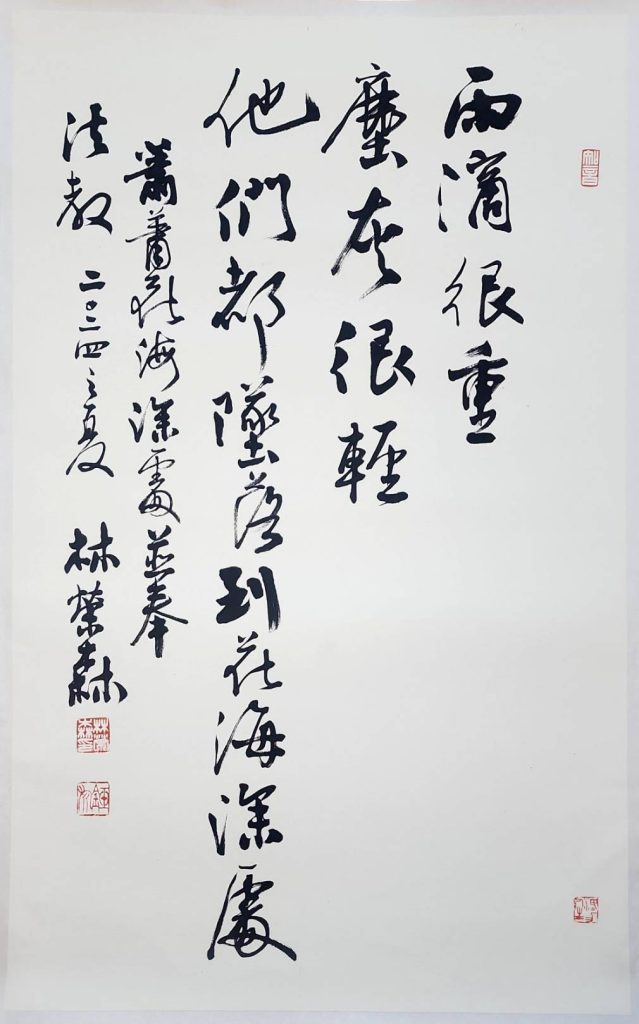 雨滴很重
塵灰很輕
他們都墜落到花海深處
蕭蕭花海深處並奉
法教 二〇二四之夏 林榮森